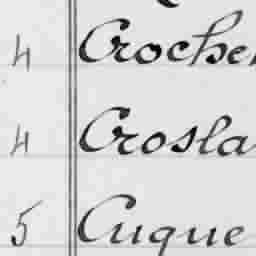 4 Croche
4 Crosla
5 Cuque